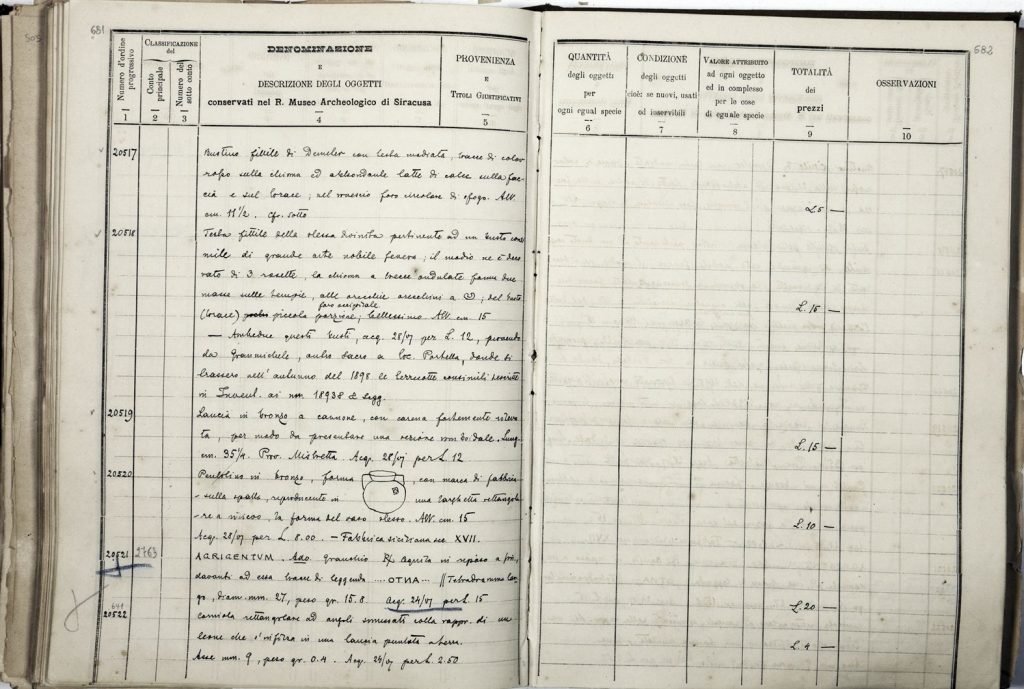 681
Numero d'ordine progressivo
CLASSIFICAZIONE del
Conto principale
Numero del sotto conto
DENOMINAZIONE
E
DESCRIZIONE DEGLI OGGETTI
conservati nel R. Museo Archeologico di Siracusa
PROVENIENZA
E
TITOLI GIUSTIFICATIVI
1 2 3 4 5
20517 Bustino fittile di Demeter con testa modiata, tracce di color
rosso sulla chioma ed abbondante latte di calce sulla fac-
cia e sul torace; nel rovescio foro circolare di sfogo. Alt.
cm. 11 1/2. Cfr. sotto
20518 Testa fittile della stessa divinità pertinente ad un busto con-
simile di grande arte nobile fenera; il modio ne è deco
rato di 3 rosette, la chioma a trecce ondulate forma due
masse sulle tempie, alle orecchie orecchini a ; del busto
foro occipitale
(torace) piccola porzione; bellissimo. Alt. cm 15
— Ambedue questi busti, acq. 28/VI per L. 12, provengono
da Grammichele, antro sacro a loc. Portella, donde si
trassero nell'autunno del 1898 le terrecotte consimili descritte
in Invent. ai nn. 18938 & segg.
20519 Lancia in bronzo a cannone, con carena fortemente rileva
ta, per modo da presentare una sezione romboidale. Lung.
cm. 35/4. Prov. Mistretta. Acq. 28/VI per L. 12
20520 Pentolino in bronzo, forma , con marca di fabbrica
sulla spalla, riproducente in una targhetta rettangola-
re a incavo, la forma del vaso stesso. Alt. cm. 15
Acq. 28/VI per L. 8.00. — Fabbrica siciliana sec. XVII.
20521 2763 AGRIGENTVM. Ado. Granchio R/ Aquila in riposo a sin.,
davanti ad essa tracce di leggenda ....OTNA... // Tetradramma lar-
go, diam. mm. 27, peso gr. 15.8 Acq. 24/VI per L. 15
641
20522 Corniola rettangolare ad angoli smussati colla rappr. di un
leone che in una lancia puntata a terra.
Asse mm. 9, peso gr. 0.4. Acq. 28/VI per L. 2.50
682
QUANTITÀ
degli oggetti
per
ogni egual specie
CONDIZIONE
degli oggetti
cioè: se nuovi, usati
od inservibili
VALORE ATTRIBUITO
ad ogni oggetto
ed in complesso
per le cose
di eguale specie
TOTALITÀ
dei
prezzi
OSSERVAZIONI
6 7 8 9 10
L. 5 —
L. 15 —
L. 15 —
L. 10 —
L. 20 —
L. 4 —